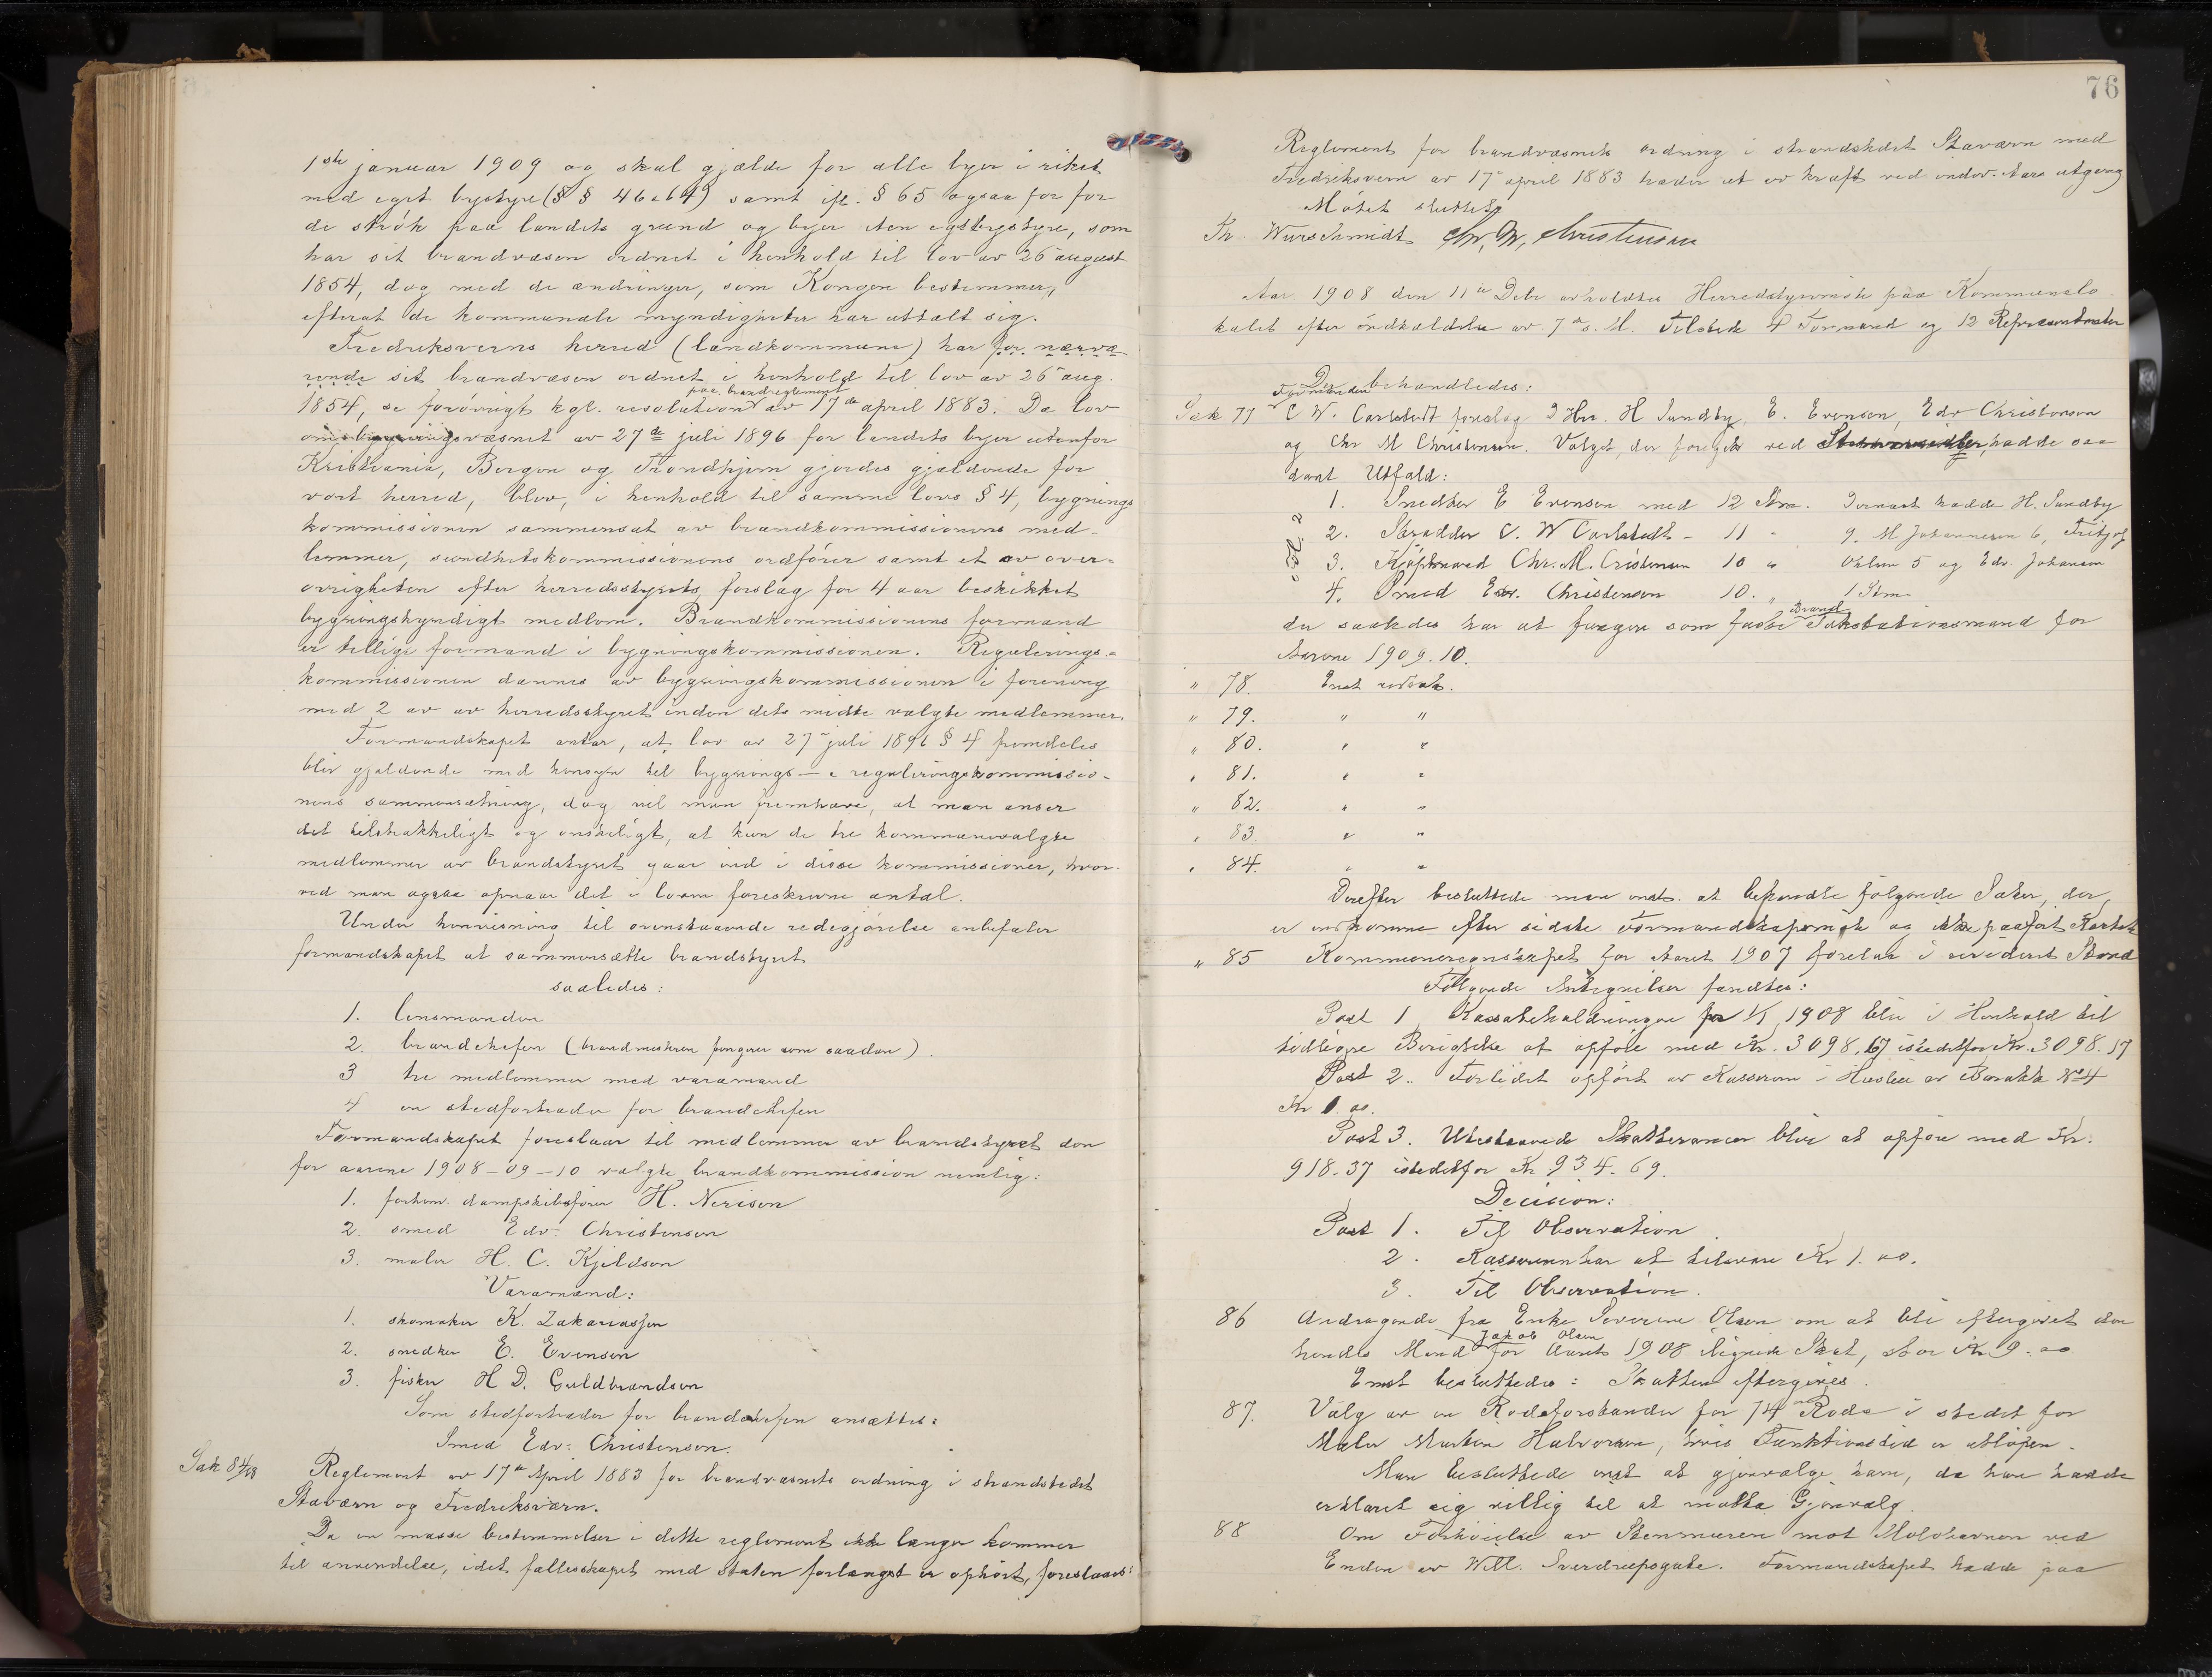 1ste januar 1909 og skal gjælde for alle byer i riket
med eget bystyre (§ § 46 a 64) samt ifl. § 65 ogsaa for for
de strøk paa landets grund og byer uten eget bystyre, som
har sit brandvæsen ordnet i henhold til lov av 26 august
1854, dog med de ændringer, som Kongen bestemmer,
efterat de kommunale myndigheter har uttalt sig.
Fredriksverns herred (landkommune) har for nærvæ-
rende sit brandvæsen ordnet i henhold til lov av 26 aug.
paa brandreglement
1854, se forøvrigt kgl. resolution av 17de april 1883. Da lov
om bygningsvæsnet av 27de juli 1896 for landets byer utenfor
Kristiania, Bergen og Trondhjem gjordes gjældende for
vort herred, blev, i henhold til samme lovs § 4, bygnings
kommissionen sammensat av brandkommissionens med-
lemmer, sundhetskommissionens ordfører samt et av over-
øvrigheten efter herredsstyrets forslag for 4 aar beskikket
bygningskyndigt medlem. Brandkommissionens formand
er tillige formand i bygningskommissionen. Regulerings-
kommissionen dannes av bygningskommissionen i forening
med 2 av av herredsstyret inden dets midte valgte medlemmer.
Formandskapet antar, at lov av 27 juli 1896 § 4 fremdeles
blir gjældende med hensyn til bygnings- & reguleringskommissio-
nens sammensætning, dog vil man fremhæve, at man anser
det tilstrækkeligt og ønskeligt, at kun de tre kommunevalgte
medlemmer av brandstyret gaar ind i disse kommissioner, hvor-
ved man ogsaa opnaar det i loven foreskrevne antal.
Under henvisning til ovenstaaende redegjørelse anbefaler
formandskapet at sammensætte brandstyret
saaledes:
1. lensmanden
2. brandchefen (brandmesteren fungerer som saadan).
3 tre medlemmer med varamænd
4 en stedfortræder for brandchefen
Formandskapet foreslaar til medlemmer av brandstyret den
for aarene 1908-09-10 valgte brandkommission nemlig:
1. forhenv. dampskibsfører H. Nerisen
2. smed Edv. Christensen
3. maler H. C. Kjeldsen
Varamænd:
1. skomaker K. Zakariassen
2. snedker E. Evensen
3. fisker H D. Guldbrandsen
Som stedfortræder for brandchefen ansættes:
Smed Edv: Christensen.
Sak 84/08 Reglement av 17de April 1883 for brandvæsnets ordning i strandstedet
Staværn og Fredriksværn.
Da en masse bestemmelser i dette reglement ikke længer kommer
til anvendelse, idet fællesskapet med staten forlængst er ophørt, foreslaaes:
76
Reglement for brandvæsnets ordning i strandstedet Staværn med
Fredriksvern av 17 april 1883 træder ut av kraft ved indev. Aars utgang
Møtet sluttet
Th. Wurschmidt Chr. M. Christensen
Aar 1908 den 11te Debr avholdtes Herredstyremøte paa Kommunelo
kalet efter indkaldelse av 7de s. M. Tilstede 4 Formænd og 12 Repræsentanter
Der behandledes:
Formanden
Sak 77 C W. Carlstedt foreslog D Hrr. H Sundby, E. Evensen, Edv Christensen
og Chr M Christensen. Valget, der foregik ved hadde saa
dant Utfald:
1. Snedker E Evensen med 12 Stm. Dernæst hadde H. Sundby
2. Skrædder C. W Carlstedt - 11 " 9. M Johannesen 6, Fritjof
3. Kjøpmand Chr. M. Cristensen 10 " Ohlsen 5 og Edv. Johansen
4. Smed Edv. Christensen 10. " 1 Stm.
Brand
der saaledes har at fungere som faste Takstationsmænd for
Aarene 1909. 10.
" 78. Enst vedtat.
" 79. " "
" 80. " "
" 81. " "
" 82. " "
" 83. " "
" 84. " "
Derefter besluttede man enst. at behandle følgende Saker, der
er indkomne efter sidste Formandskapsmøte og ikke paaført Kartet
" 85 Kommuneregnskapet for Aaret 1907 forelaa i revideret Stand
Følgende Antegnelser fandtes:
Post 1 Kassabeholdningen pr 1/1 1908 blir i Henhold til
tidligere Berigtelse at opføre med Kr. 3098.67 istedetfor Kr. 3098.17
Post 2. Forlidet opført av Kasseren i Husleie av Barakke No 4
Kr 1. 00.
Post 3. Utestaaende Skatterancer blir at opføre med Kr.
918.37 istedetfor Kr 934.69.
Decision:
Post 1. Til Observation
2. Kassereren har at tilsvare Kr 1. 00.
3. Til Observation.
86 Andragende fra Enke Severine Olsen om at bli eftergivet den
Jakob Olsen
hendes Mand for Aaret 1908 ilignede Skat, stor Kr 9.00
Enst besluttedes: Skatten eftergives.
87. Valg av en Rodeforstander for 14de Rode i stedet for
Maler Morten Halvorsen, hvis Funktionstid er utløpen.
Man besluttede enst at gjenvælge ham, da han hadde
erklæret sig villig til at motta Gjenvalg.
88 Om Forhøielse av Stenmuren mot Molohavnen ved
Enden av Will. Sverdrupsgate. Formandskapet hadde paa